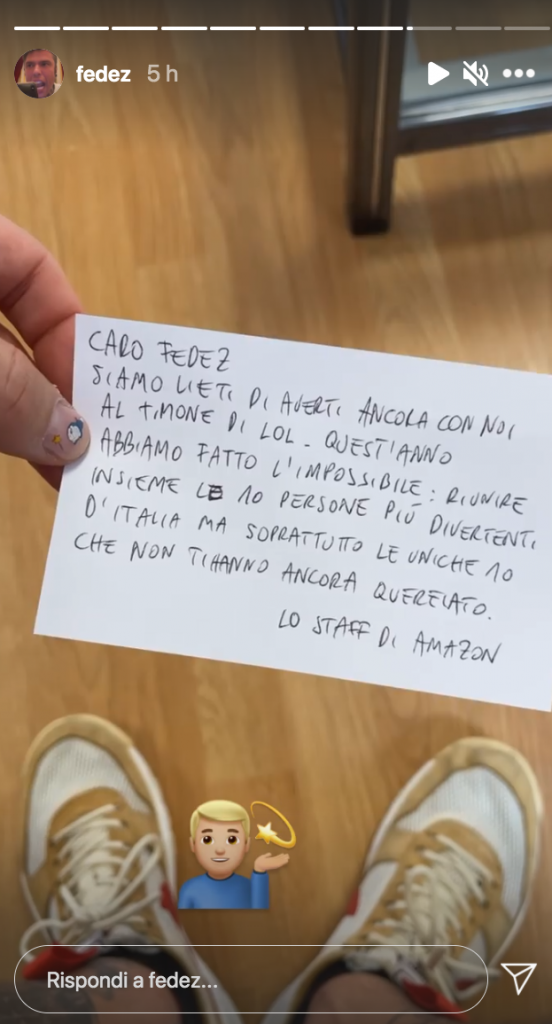 fedez 5 h
CARO FEDEZ
SIAMO LIETI DI AVERTI ANCORA CON NOI
AL TIMONE DI LOL. QUEST'ANNO
ABBIAMO FATTO L'IMPOSSIBILE: RIUNIRE
INSIEME LE 10 PERSONE PIÚ DIVERTENTI
D'ITALIA MA SOPRATTUTTO LE UNICHE 10
CHE NON TI HANNO ANCORA QUERELATO.
LO STAFF DI AMAZON
Rispondi a fedez...